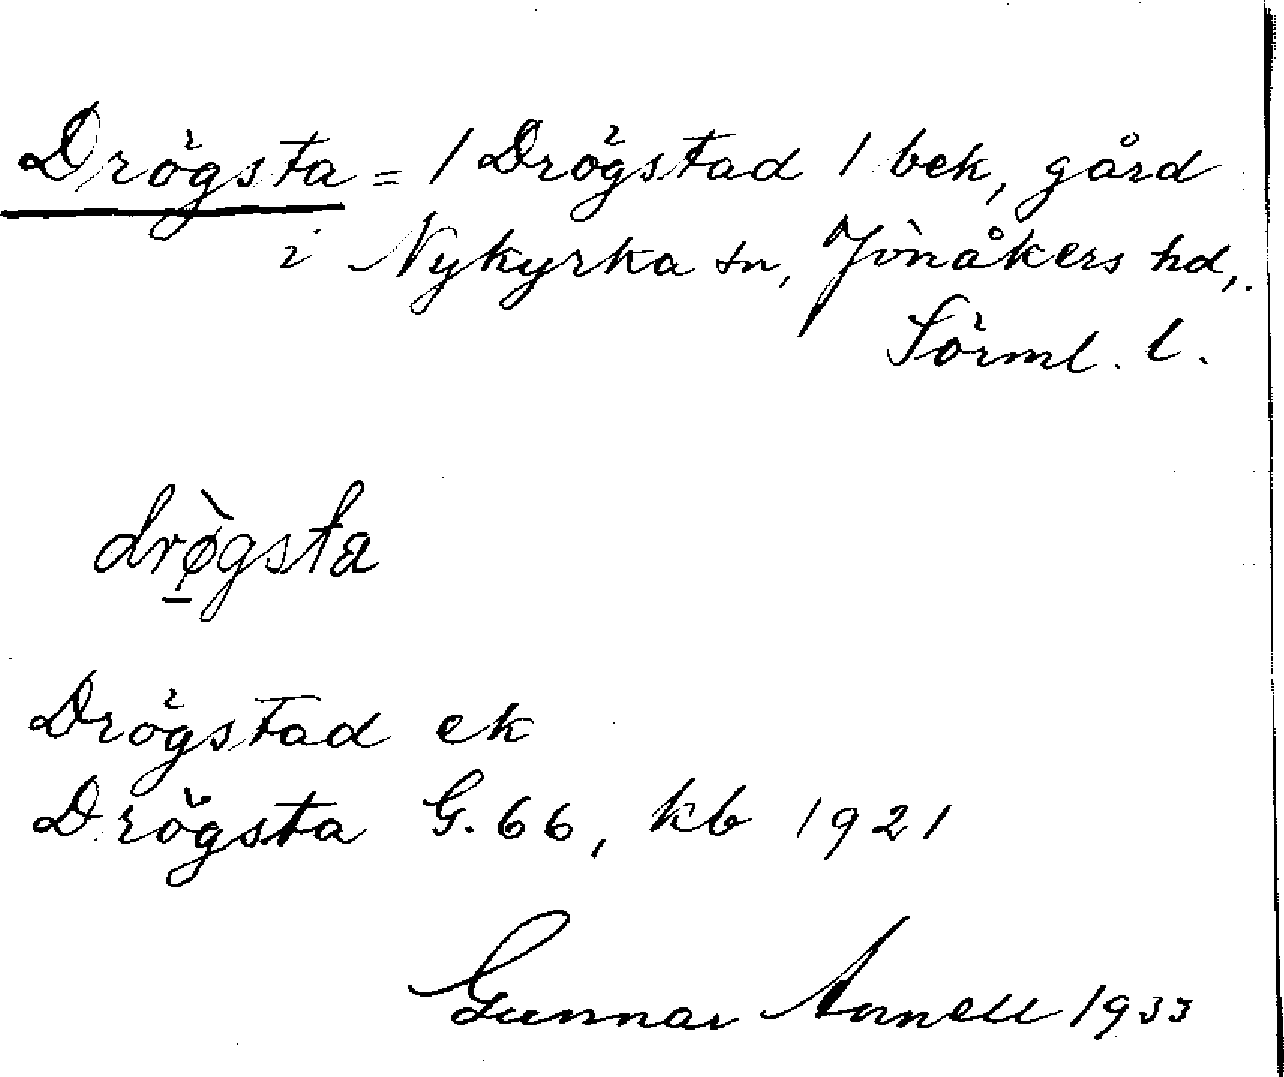 Drögsta = / Drögstad / bek, gård
i Nykyrka sn, Jönåkers hd,.
Sörml. l.
drø̀gsta
Drögstad ek
Drögsta G. 66, kb 1921
Gunnar Annell 1933